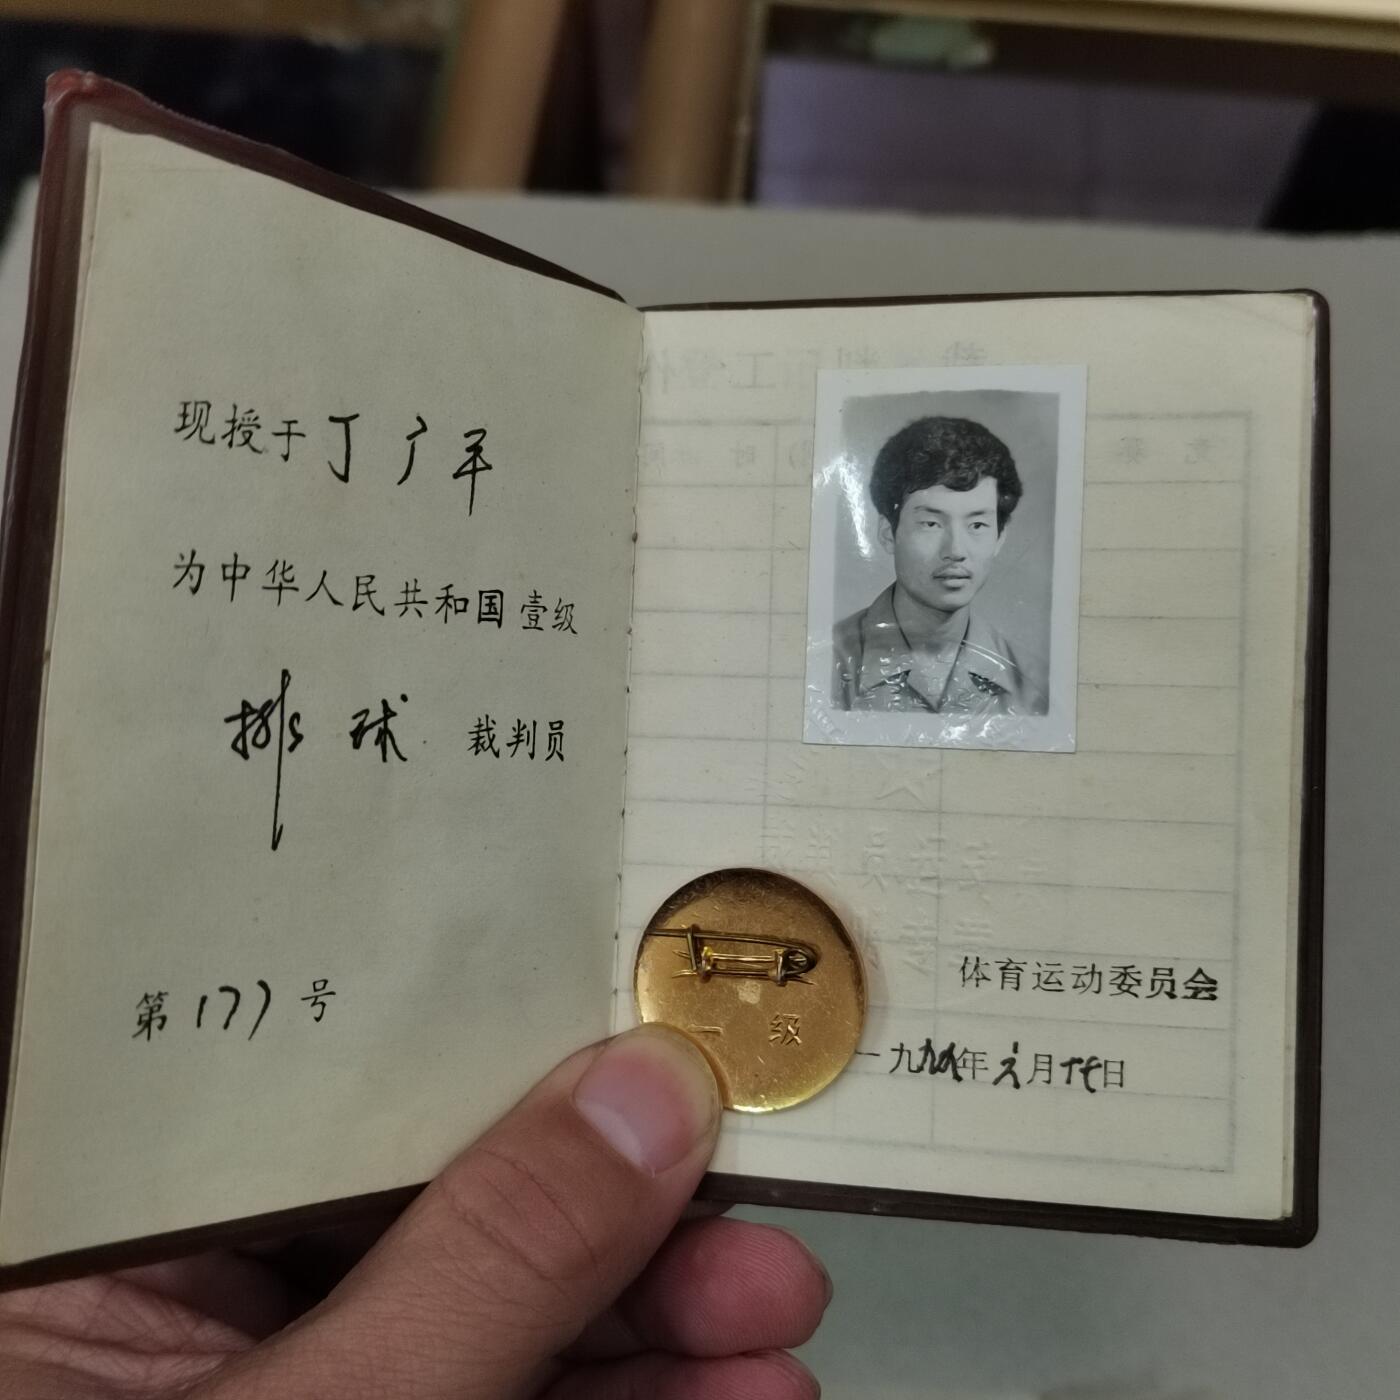 现授于丁广平
为中华人民共和国壹级
排球 裁判员
第177号
一 级
体育运动委员会
一九 年 六月 日